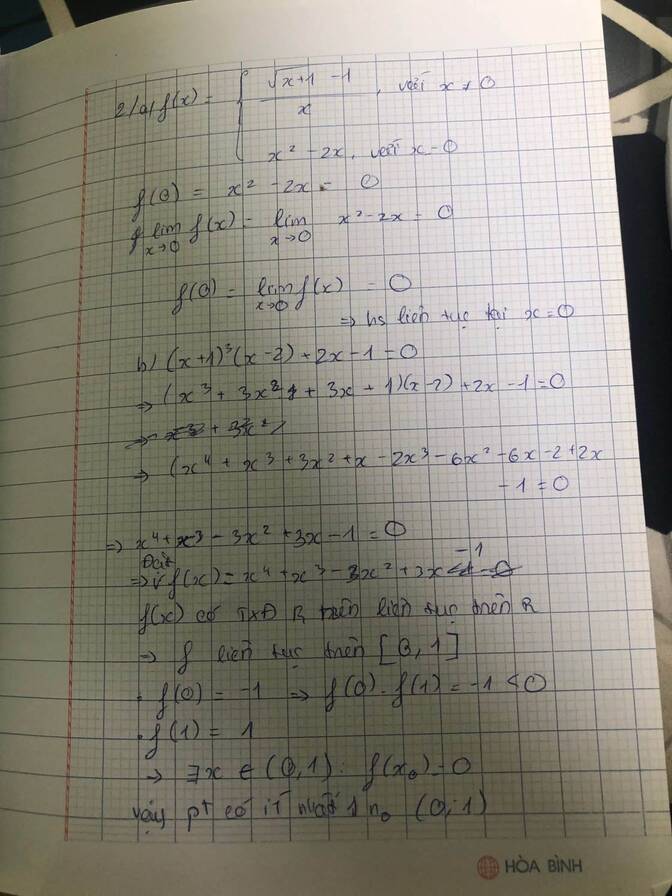 2/a) f(x) = { (√x+1 - 1)/x , với x ≠ 0
x² - 2x, với x = 0
f(0) = x² - 2x = 0
lim x→0 f(x) = lim x→0 x² - 2x = 0
f(0) = lim x→0 f(x) = 0
⇒ hs liên tục tại x = 0
b) (x+1)³(x-2) + 2x - 1 = 0
⇒ (x³ + 3x² + 3x + 1)(x-2) + 2x - 1 = 0
⇒ (x⁴ + x³ + 3x² + x - 2x³ - 6x² - 6x - 2 + 2x
- 1 = 0
⇒ x⁴ + x³ - 3x² + 3x - 1 = 0
Đặt
⇒ f(x) = x⁴ + x³ - 3x² + 3x - 1
f(x) có TXĐ R nên liên tục trên R
⇒ f liên tục trên [0, 1]
· f(0) = -1 ⇒ f(0) . f(1) = -1 < 0
· f(1) = 1
⇒ ∃x ∈ (0, 1) : f(x₀) = 0
Vậy pt có ít nhất 1 n₀ (0; 1)
HÒA BÌNH